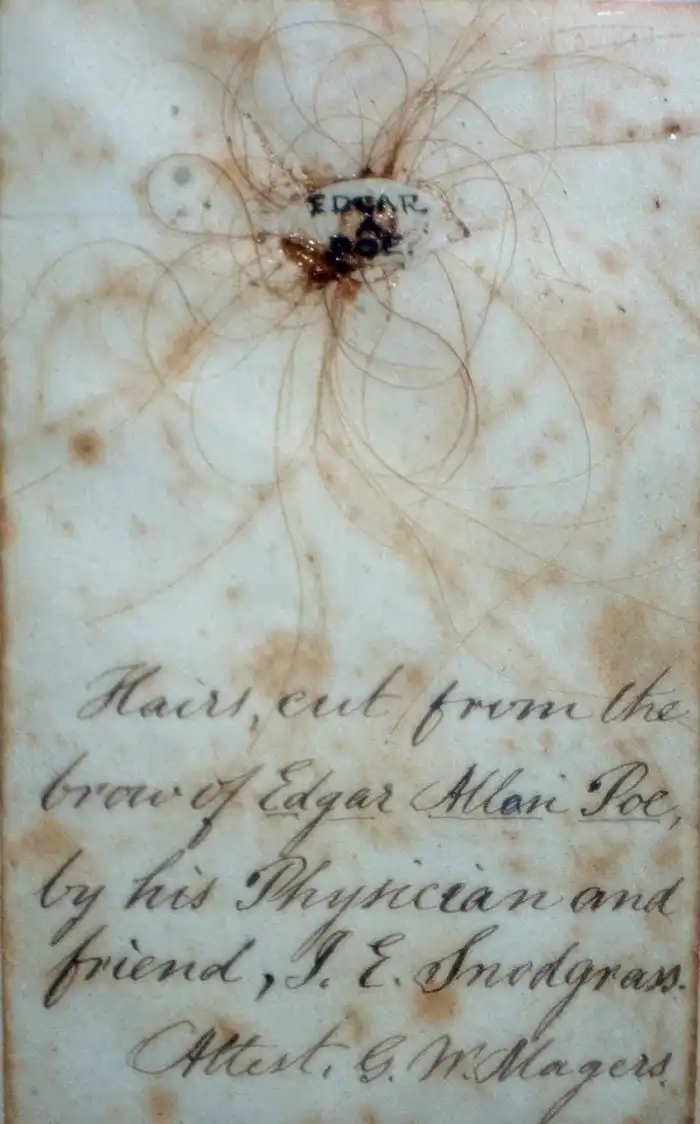 EDGAR
A
POE.
Hairs, cut from the
brow of Edgar Allan Poe,
by his Physician and
friend, J. E. Snodgrass.
Attest. G. W. Magers.